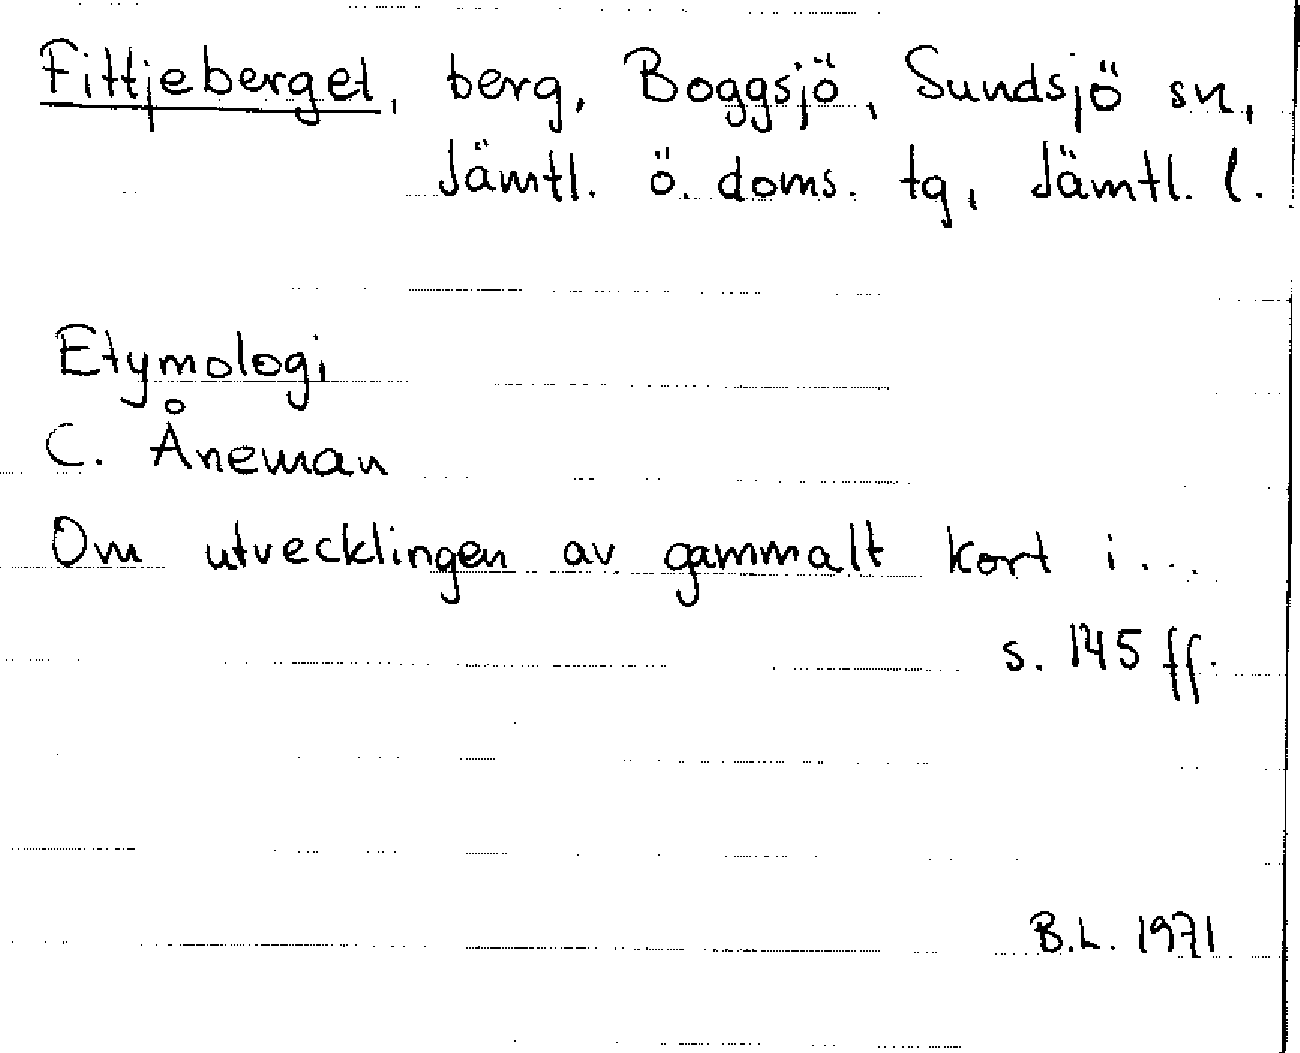 Fittjeberget, berg, Boggsjö, Sundsjö sn,
Jämtl. ö. doms. tg, Jämtl. l.
Etymologi
C. Åneman
Om utvecklingen av gammalt kort i...
s. 145 ff.
B.L. 1971